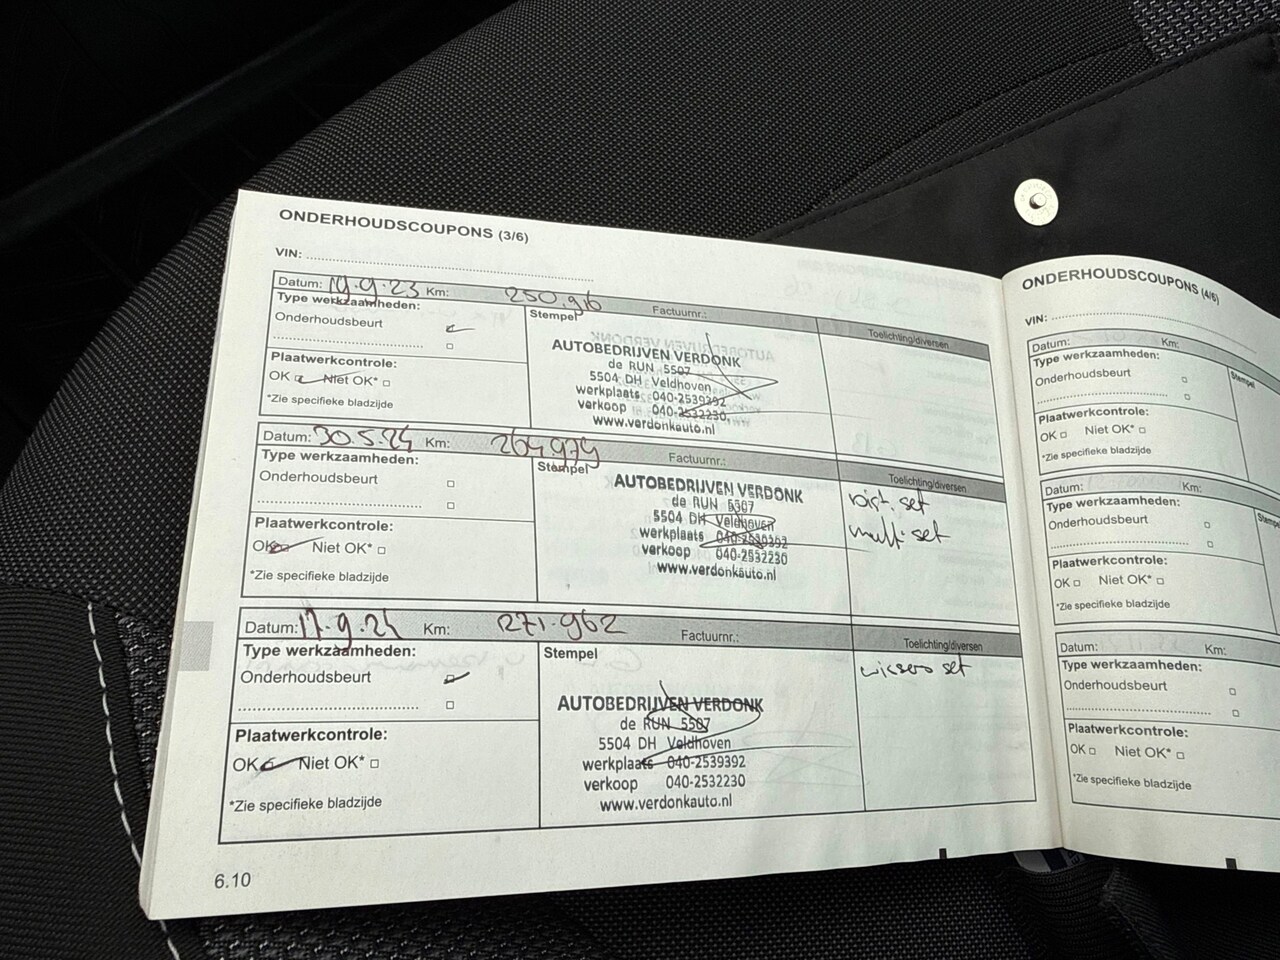 ONDERHOUDSCOUPONS (3/6)
VIN:
Datum: 19.9.23 Km: 250.916 Factuurnr.:
Type werkzaamheden:
Onderhoudsbeurt
Plaatwerkcontrole:
OK Niet OK*
*Zie specifieke bladzijde
Stempel
AUTOBEDRIJVEN VERDONK
de RUN 5507
5504 DH Veldhoven
werkplaats 040-2539392
verkoop 040-2532230
www.verdonkauto.nl
Toelichting/diversen
Datum: 30.5.24 Km: 264979 Factuurnr.:
Type werkzaamheden:
Onderhoudsbeurt
Plaatwerkcontrole:
OK Niet OK*
*Zie specifieke bladzijde
Stempel
AUTOBEDRIJVEN VERDONK
de RUN 5507
5504 DH Veldhoven
werkplaats 040-2539392
verkoop 040-2532230
www.verdonkauto.nl
Toelichting/diversen
dist. set
multi set
Datum: 17.9.24 Km: 271.962 Factuurnr.:
Type werkzaamheden:
Onderhoudsbeurt
Plaatwerkcontrole:
OK Niet OK*
*Zie specifieke bladzijde
Stempel
AUTOBEDRIJVEN VERDONK
de RUN 5507
5504 DH Veldhoven
werkplaats 040-2539392
verkoop 040-2532230
www.verdonkauto.nl
Toelichting/diversen
wissers set
6.10
ONDERHOUDSCOUPONS (4/6)
VIN:
Datum: Km:
Type werkzaamheden:
Onderhoudsbeurt
Plaatwerkcontrole:
OK Niet OK*
*Zie specifieke bladzijde
Stempel
Datum: Km:
Type werkzaamheden:
Onderhoudsbeurt
Plaatwerkcontrole:
OK Niet OK*
*Zie specifieke bladzijde
Datum: Km:
Type werkzaamheden:
Onderhoudsbeurt
Plaatwerkcontrole:
OK Niet OK*
*Zie specifieke bladzijde